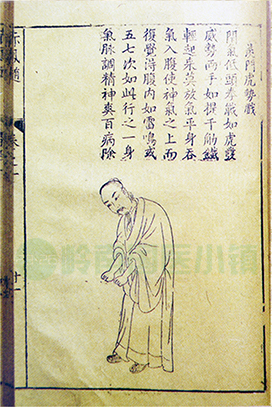 羨門虎勢戲
閉氣低頭拳戰如虎發
威勢兩手如提千觔鐵
輕起來莫放氣平身吞
氣入腹使神氣之上而
復覺得腹內如雷鳴或
五七次如此行之一身
氣脈調精神爽百病除
赤鳳髓
卷之一